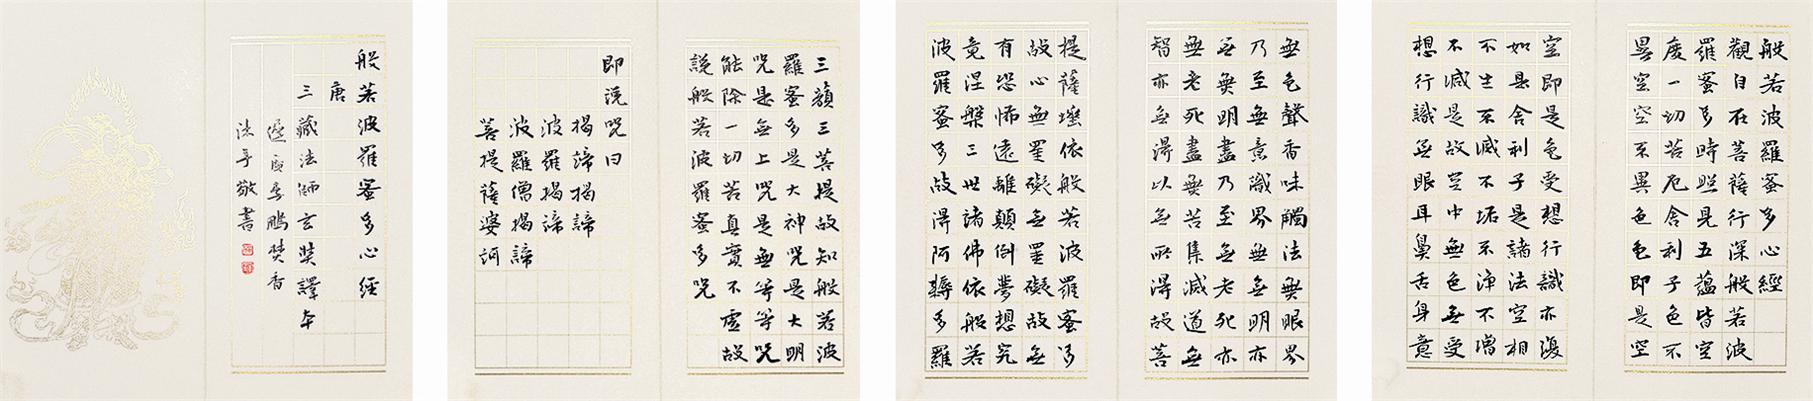 般若波羅蜜多心經
觀自在菩薩行深般若波
羅蜜多時照見五蘊皆空
度一切苦厄舍利子色不
異空空不異色色即是空
空即是色受想行識亦復
如是舍利子是諸法空相
不生不滅不垢不淨不增
不減是故空中無色無受
想行識無眼耳鼻舌身意
無色聲香味觸法無眼界
乃至無意識界無無明亦
無無明盡乃至無老死亦
無老死盡無苦集滅道無
智亦無得以無所得故菩
提薩埵依般若波羅蜜多
故心無罣礙無罣礙故無
有恐怖遠離顛倒夢想究
竟涅槃三世諸佛依般若
波羅蜜多故得阿耨多羅
三藐三菩提故知般若波
羅蜜多是大神咒是大明
咒是無上咒是無等等咒
能除一切苦真實不虛故
說般若波羅蜜多咒
即說咒曰
揭諦揭諦
波羅揭諦
波羅僧揭諦
菩提薩婆訶
般若波羅蜜多心經
唐
三藏法師玄奘譯本
鵬焚香
沐手敬書